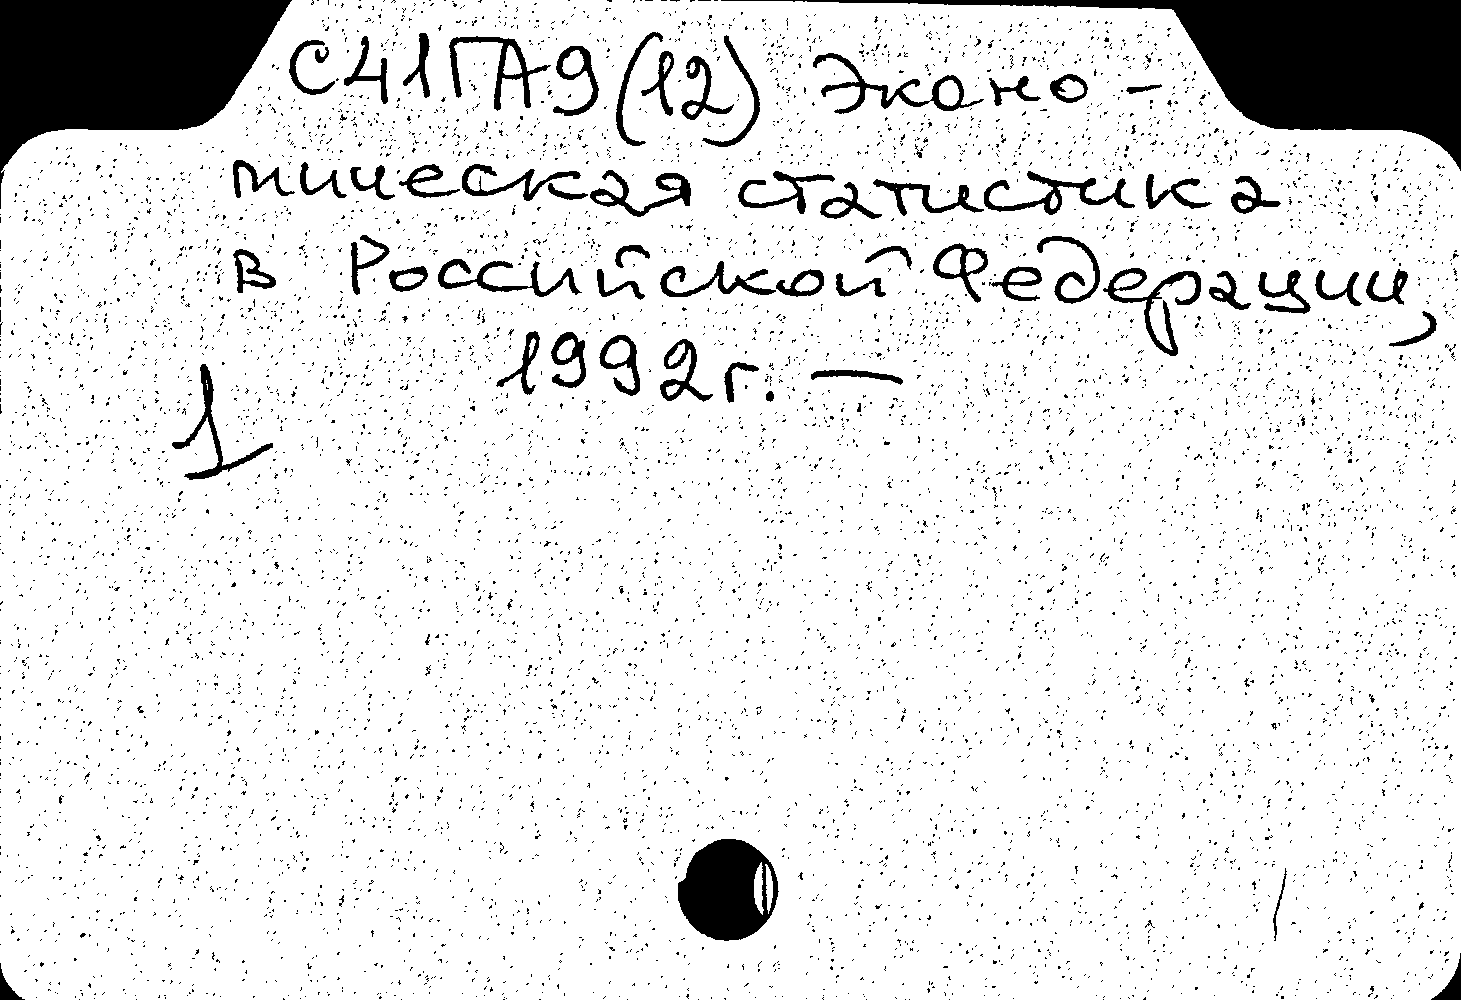 С41ГА9(12) Эконо-
мическая статистика
в Российской Федерации,
1992г. —
1